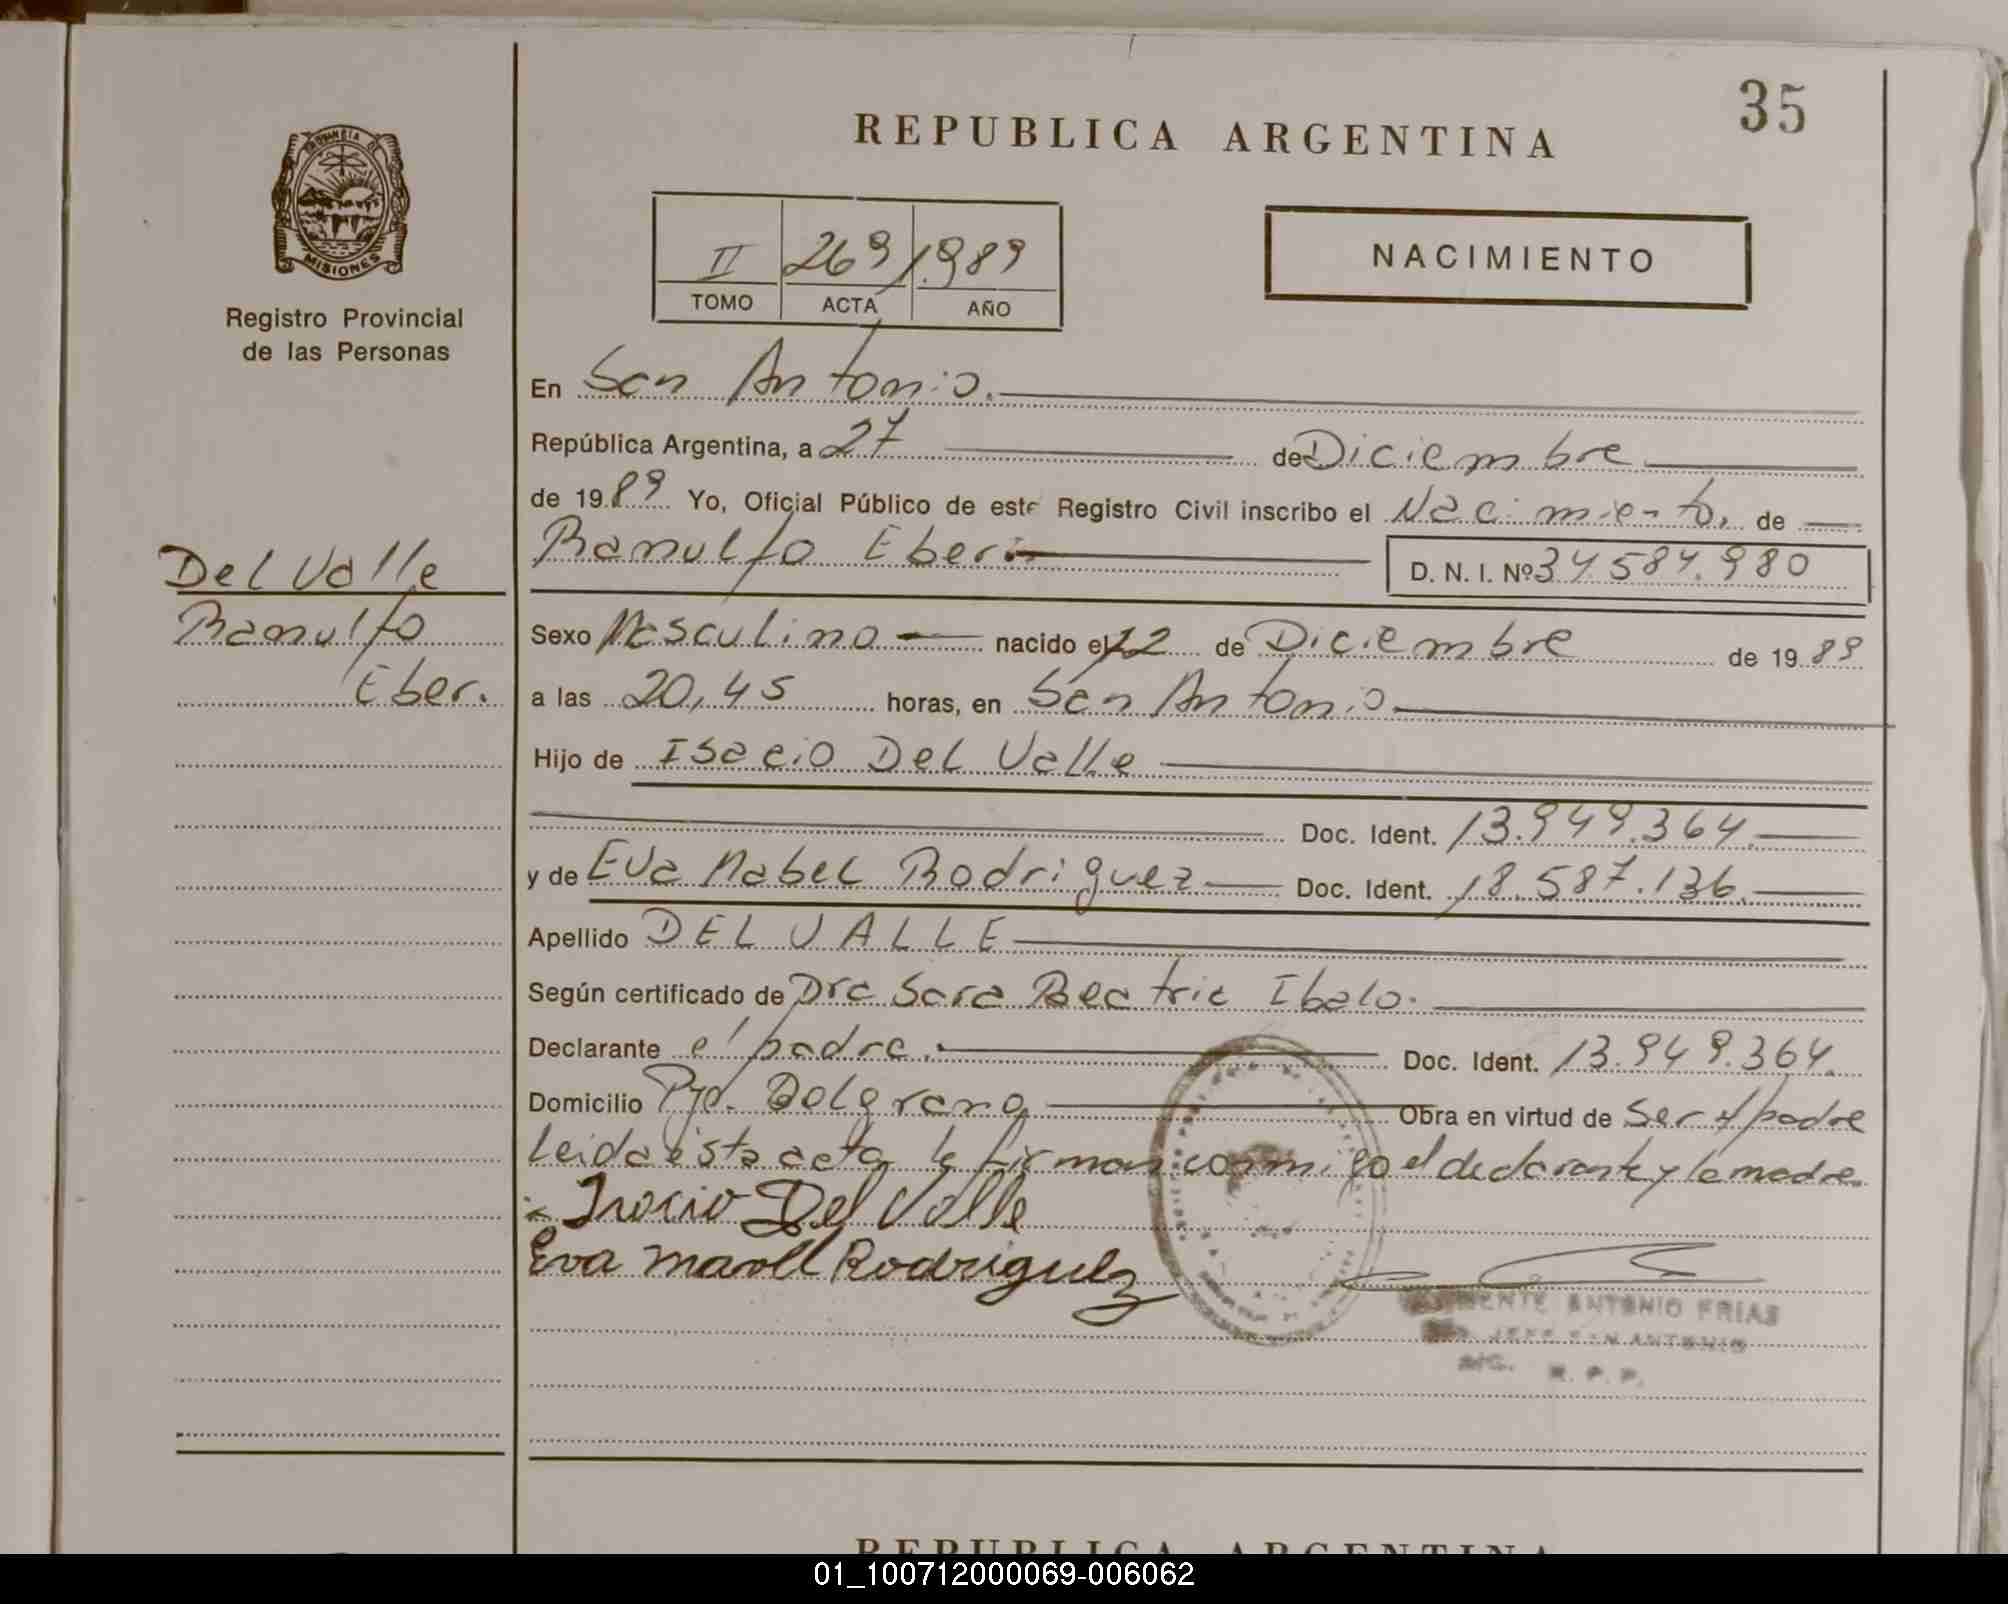 35
REPUBLICA ARGENTINA
PROVINCIA DE
MISIONES
Registro Provincial
de las Personas
II 269 1.989
TOMO ACTA AÑO
NACIMIENTO
En San Antonio.
República Argentina, a 27 de Diciembre
de 1989 Yo, Oficial Público de este Registro Civil inscribo el Nacimiento. de
Ranulfo Eber.
D. N. I. Nº 34.584.980
Del Valle
Ranulfo
Eber.
Sexo Masculino nacido el 12 de Diciembre de 1989
a las 20,45 horas, en San Antonio
Hijo de Isacio Del Valle
Doc. Ident. 13.949.364.
y de Eva Mabel Rodriguez Doc. Ident. 18.587.136.
Apellido DEL VALLE
Según certificado de Dra Sara Beatriz Ibalo.
Declarante el padre. Doc. Ident. 13.949.364.
Domicilio Pje. Belgrano Obra en virtud de ser el padre
Leida ésta acta, la firman conmigo el declarante y la madre.
Del Valle
Eva Mavell Rodriguez
ANTONIO FRIAS
JEFE SAN ANTONIO
R. P. P.
REPUBLICA ARGENTINA
01_100712000069-006062